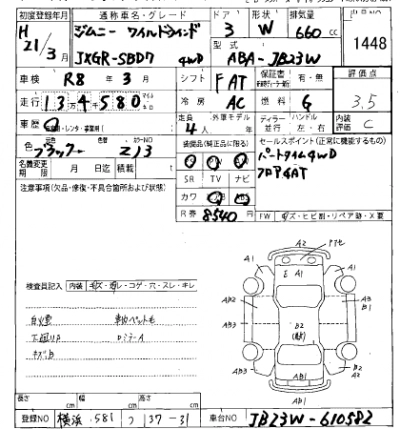 初度登録年月 通称車名・グレード ドア 形状 排気量
H 21/3 月 ジムニー ワイルドウインド 3 W 660 cc 1448
JXGR-SBD7 4WD 型式 ABA-JB23W
車検 R8年3月 シフト FAT 保証書 有・無 評価点
走行 134580 冷房 AC 燃料 G 3.5
車歴 レンタ・事業用 定員 外車モデル ディーラー ハンドル 内装評価
4人 年 並行 左・右 C
色 ブラック カラーNO ZJ3 装備品(純正品に限る) セールスポイント(正常に機能するもの)
名義変更期限 月 日迄 積載 t パートタイム4WD
SR TV ナビ フロア4AT
注意事項(欠品・修復・不具合箇所および状態)
カワ
R券 8540円 FW キズ・ヒビ割・リペア跡・X要
A2
A1 E A1 A1
検査員記入 内装 キズ・ヨゴレ・コゲ・穴・スレ・キレ
AB2 AB B1
AB3 B2
下廻りサ
キズB
AB3 B2 A2
AB1
AB1
長さ cm 幅 cm 高さ cm
登録NO 横浜 581 つ 37-31 車台NO JB23W-610582